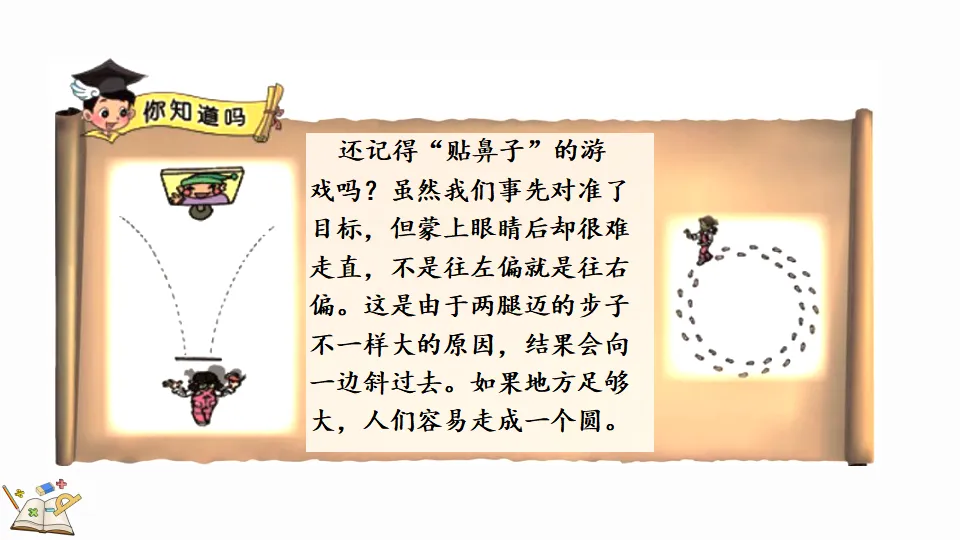 你知道吗
还记得“贴鼻子”的游
戏吗？虽然我们事先对准了
目标，但蒙上眼睛后却很难
走直，不是往左偏就是往右
偏。这是由于两腿迈的步子
不一样大的原因，结果会向
一边斜过去。如果地方足够
大，人们容易走成一个圆。